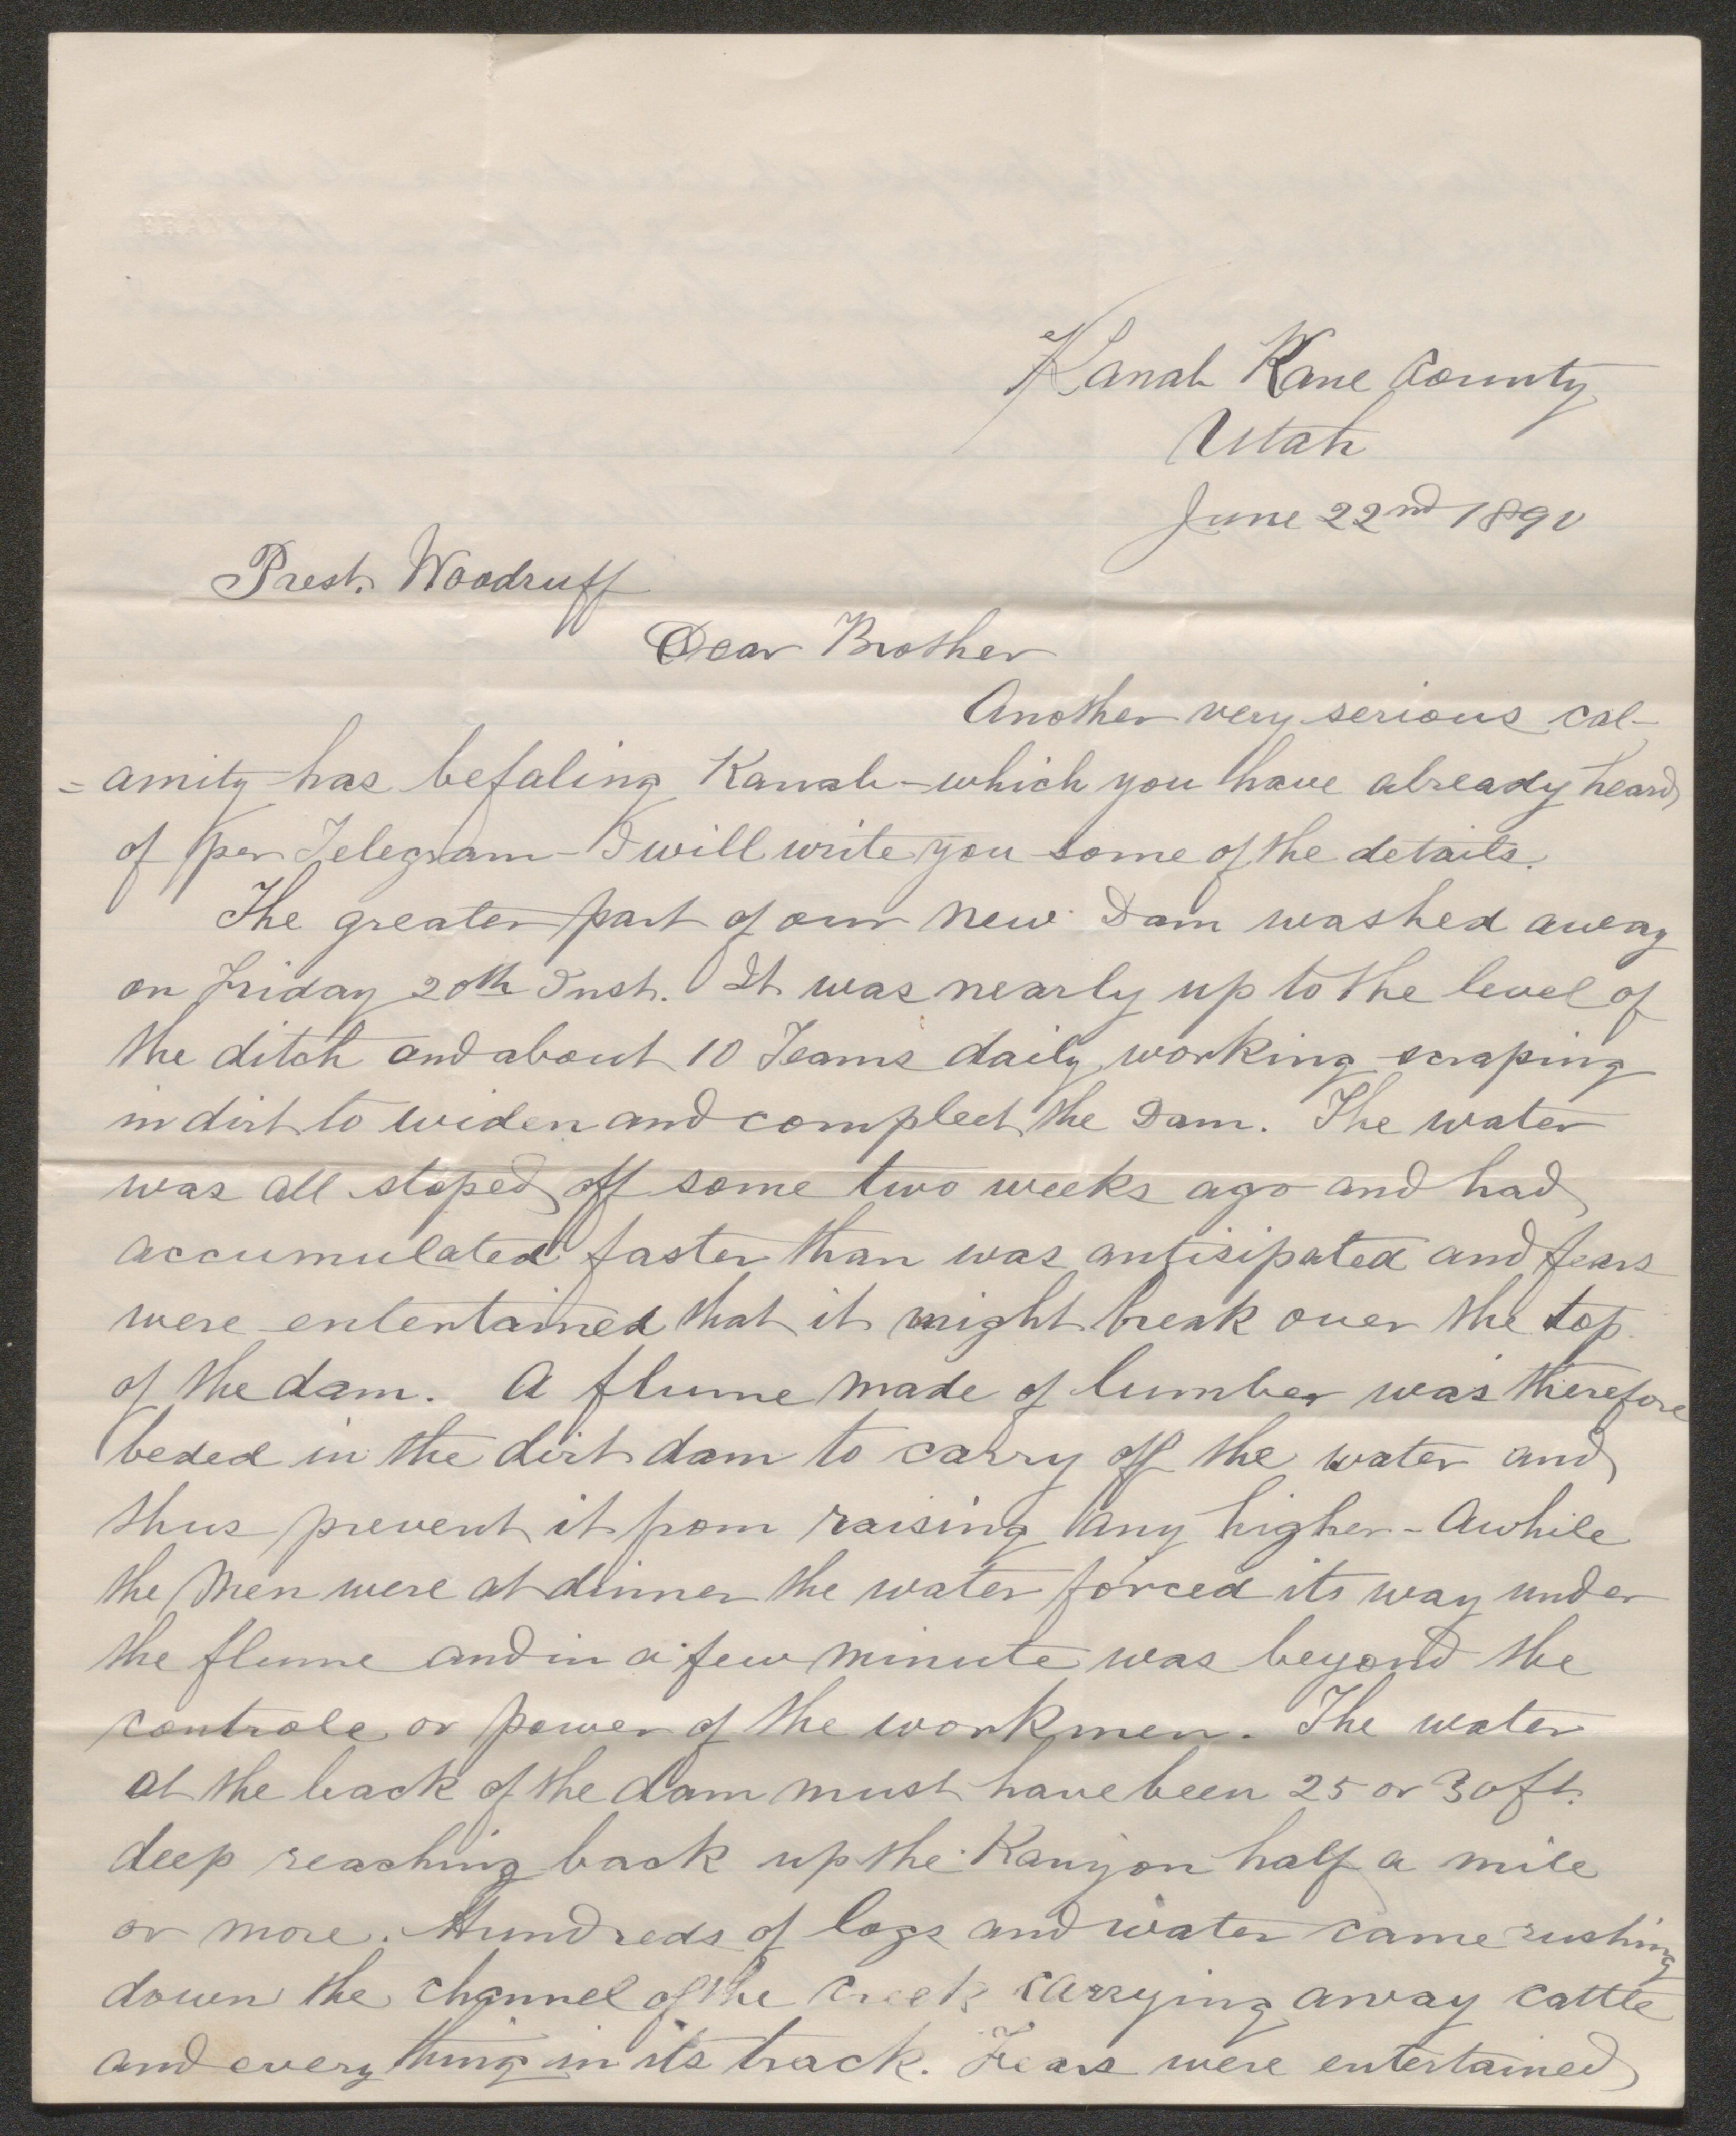 Kanab Kane County
Utah
June 22nd 1890
Prest. Woodruff
Dear Brother
Another very serious cal-
=amity has befaling Kanab - which you have already heard
of per Telegram - I will write you some of the details.
The greater part of our new Dam washed away
on Friday 20th Inst. It was nearly up to the level of
the ditch and about 10 Teams daily working scraping
in dirt to widen and compleet the Dam. The water
was all stoped off some two weeks ago and had
accumulated faster than was antisipated and fears
were entertained that it might break over the top
of the dam. A flume made of lumber was therefore
beded in the dirt dam to carry off the water and
thus prevent it from raising any higher - Awhile
the men were at dinner the water forced its way under
the flume and in a few minute was beyond the
controle or power of the workmen. The water
at the back of the dam must have been 25 or 30 ft.
deep reaching back up the Kanyon half a mile
or more. Hundreds of logs and water came rushing
down the channel of the creek carrying away cattle
and every thing in its track. Fears were entertained